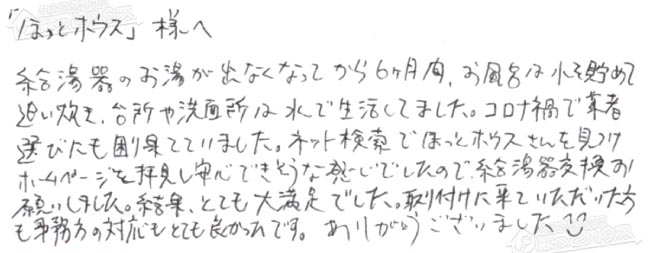 「ほっとホウス」様へ
給湯器のお湯が出なくなってから6ヶ月間、お風呂は水を貯めて
追い炊き、台所や洗面所は水で生活してました。コロナ禍で業者
選びにも困り果てていました。ネット検索でほっとホウスさんを見つけ
ホームページを拝見し安心できそうな感じでしたので給湯器交換お
願いしました。結果、とても大満足でした。取り付けに来ていただいた方
も事務方の対応もとても良かったです。ありがとうございました